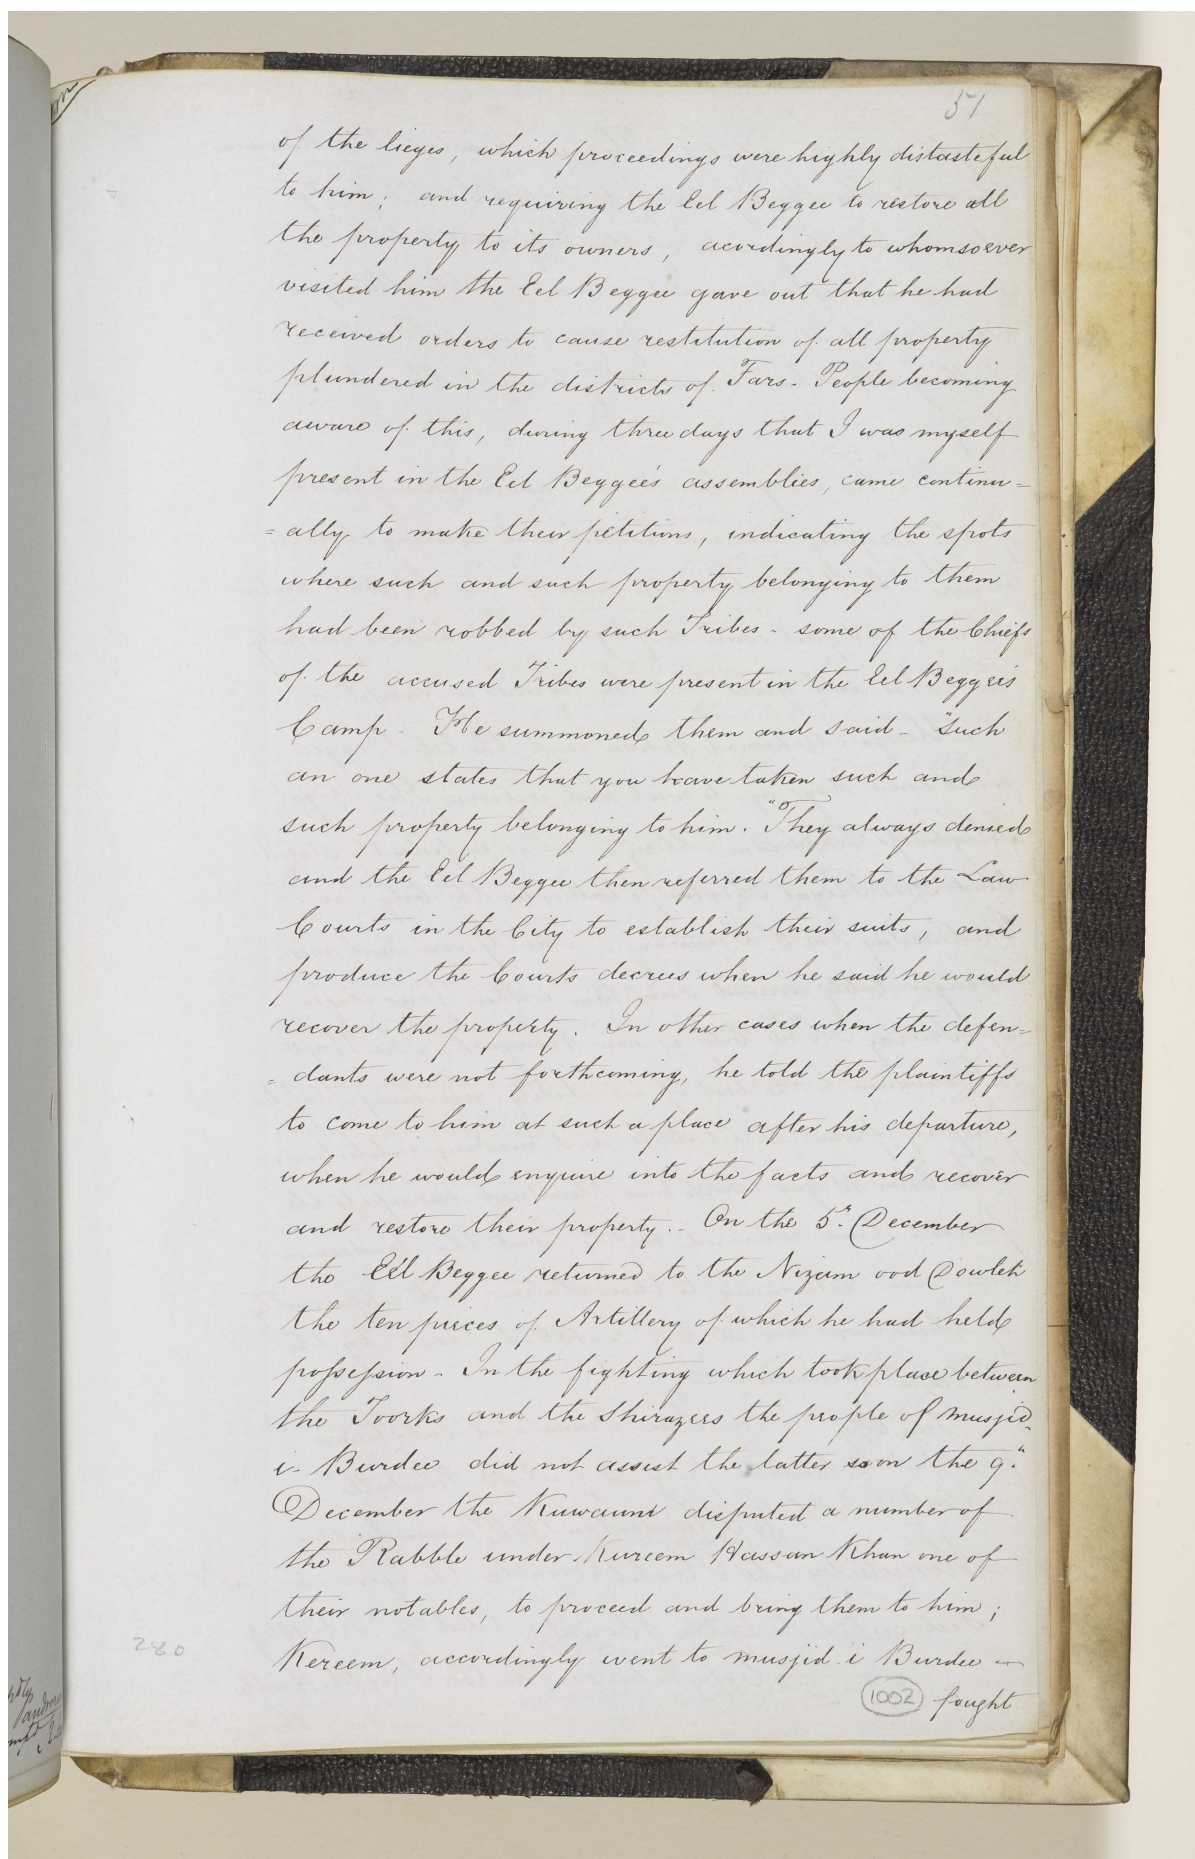 51
of the lieges, which proceedings were highly distasteful
to him; and requiring the Eel Beggee to restore all
the property to its owners, acordingly to whomsoever
visited him the Eel Beggee gave out that he had
received orders to cause restitution of all property
plundered in the districts of Fars. People becoming
aware of this, during three days that I was myself
present in the Eel Beggee's assemblies, came continu=
=ally to make their petitions, indicating the spots
where such and such property belonging to them
had been robbed by such Tribes - some of the Chiefs
of the accused Tribes were present in the Eel Beggee's
Camp - He summoned them and said - "Such
an one states that you have taken such and
such property belonging to him." They always denied
and the Eel Beggee then referred them to the Law
Courts in the City to establish their suits, and
produce the Courts decrees when he said he would
recover the property. In other cases when the defen=
=dants were not forthcoming, he told the plaintiffs
to come to him at such a place after his departure,
when he would enquire into the facts and recover
and restore their property. - On the 5th. December
the Eel Beggee returned to the Nizam ood Dowleh
the ten pieces of Artillery of which he had held
possession - In the fighting which took place between
the Toorks and the Shirazees the people of Musjid-
i- Burdee did not assist the latter so on the 9th.
December the Kuwaum disputed a number of
the Rabble under Kureem Hassan Khan one of
their notables, to proceed and bring them to him;
Kereem, accordingly went to musjid i Burdee -
fought
1002
280